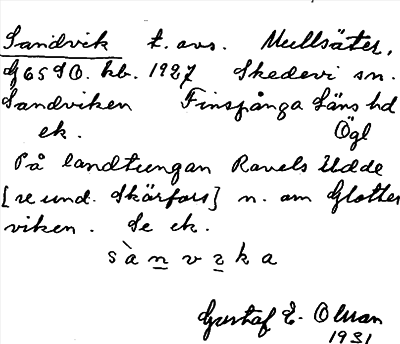 Sandvik t. avs. Mullsäter,
G 65 SO. kb. 1927 Skedevi sn.
Sandviken Finspånga läns hd
ek. Ögl
På landtungan Ravels Udde
[se und. Skärfors] n. om Glotter
viken. Se ek.
sànvzka
Gustaf E. Olman
1931